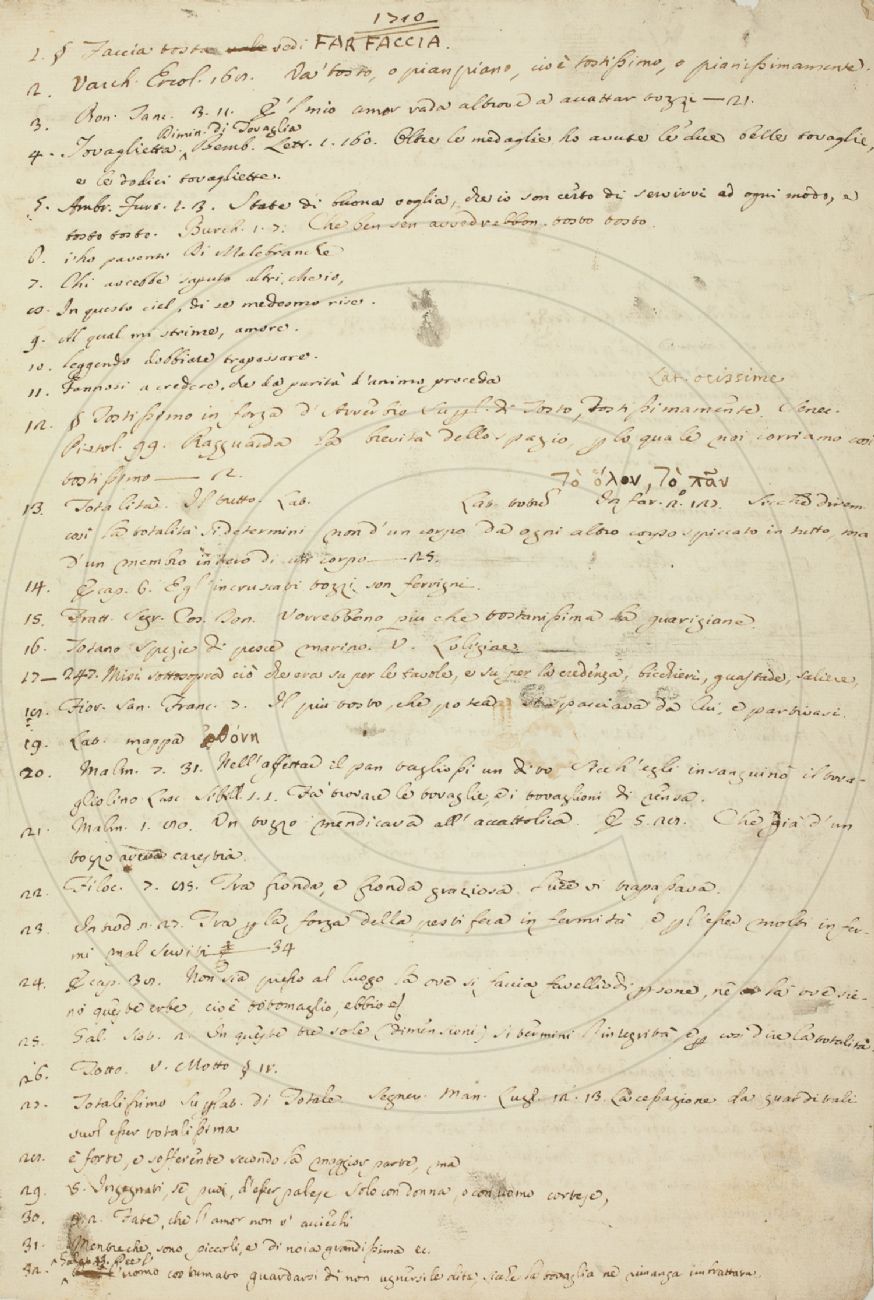 1710
1. § Faccia tosta vedi FAR FACCIA.
2. Varch. Ercol. 168. Va' tosto, o pian piano, cioè tostissimo, o pianissimamente.
3. Bon. Tanc. 3. 11. E 'l mio amor vada altrove a accattar tozzi — 21.
Dimin. di Tovaglia
4. Tovaglietta. Bemb. Lett. 1. 160. Oltre le medaglie ho avute le due belle tovaglie,
e le dodici tovagliette.
5. Ambr. Furt. 1. 3. State di buona voglia, che io son certo di servirvi ad ogni modo, e
tosto tosto. Burch. 1. 7. Che ben sen avvedrebbon tosto tosto.
6. i' ho pavento Di Malebranche
7. Chi avrebbe saputo altri, che io,
8. In questo ciel, di se medesmo rise.
9. Al qual mi strinse, amore.
10. leggendo dobbiate trapassare.
11. Fannosi a credere, che da purità d'animo proceda
Lat. ocissime
12. § Tostissimo in forza d'Avverbio Suppl. di Tosto, Tostissimamente. Senec.
Pistol. 99. Ragguarda la brevità dello spazio, p lo quale noi corriamo così
tostissimo — 2.
Τὸ ὅλον, Τὸ πᾶν
13. Totalità. Il tutto. Lab. Lat. Da far.
così la totalità si determini non d'un corpo da ogni altro corpo spiccato in tutto, ma
d'un membro intero di corpo — 25.
14. E cap. 6. E gl'incruscati tozzi son ferrigni.
15. Tratt. Segr. Cos. Don. Vorrebbono piu che tostanissima la guarigione.
16. Totano Spezie di pesce marino. V. Loligine
17 — 247. Mise sottosopra ciò che era su per le tavole, e su per la credenza, bicchieri, guastade, saliere.
18. Fior. San. Franc. 7. Il più tosto, che potea si spacciava da lui, e partivasi.
19. Lat. mappa ὀθόνη
20. Malm. 7. 31. Nell'affettare il pan tagliossi un dito Sicch'egli insanguinò il tova-
gliolino Lasc. Sibill. 1. 1. Fa' trovare le tovaglie, e i tovaglioni di rensa.
21. Malm. 1. 80. Un tozzo mendicava all'accattolica. E 5. 28. Che già d'un
tozzo aveva carestia.
22. Filoc. 7. 83. Tra fronda, e fronda graziosa luce vi trapassava.
23. Introd. n. 27. Tra p la forza della pestifera infermità, e p l'esser molti infer-
mi mal serviti — 34
24. E cap. 38. Non sia presso al luogo la ove si faccia favellio di psone, nè la ove sie-
no queste erbe, cioè totomaglio, ebbio
25. Gal. Sist. 2. In queste tre sole (dimensioni) si termini l'integrità, e p così dire la totalità.
26. Totto. V. Motto § 11.
27. Totalissimo Superlat. di Totale Segner. Man. Lugl. 12. 13. La cessazione da guardi tali
vuol esser totalissima
28. è forte, e sofferente secondo la maggior parte, ma
29. 5. Ingegnati, se puoi, d'esser palese Solo con donna, o con uomo cortese,
30. Fate, che l'amor non v' acciechi
31. Mentreche, sono piccoli, e di noia grandissima ec.
Galat. 13. Dee l'
32. uomo costumato guardarsi di non ugnersi le dita, sicchè la tovaglia ne rimanga imbrattata